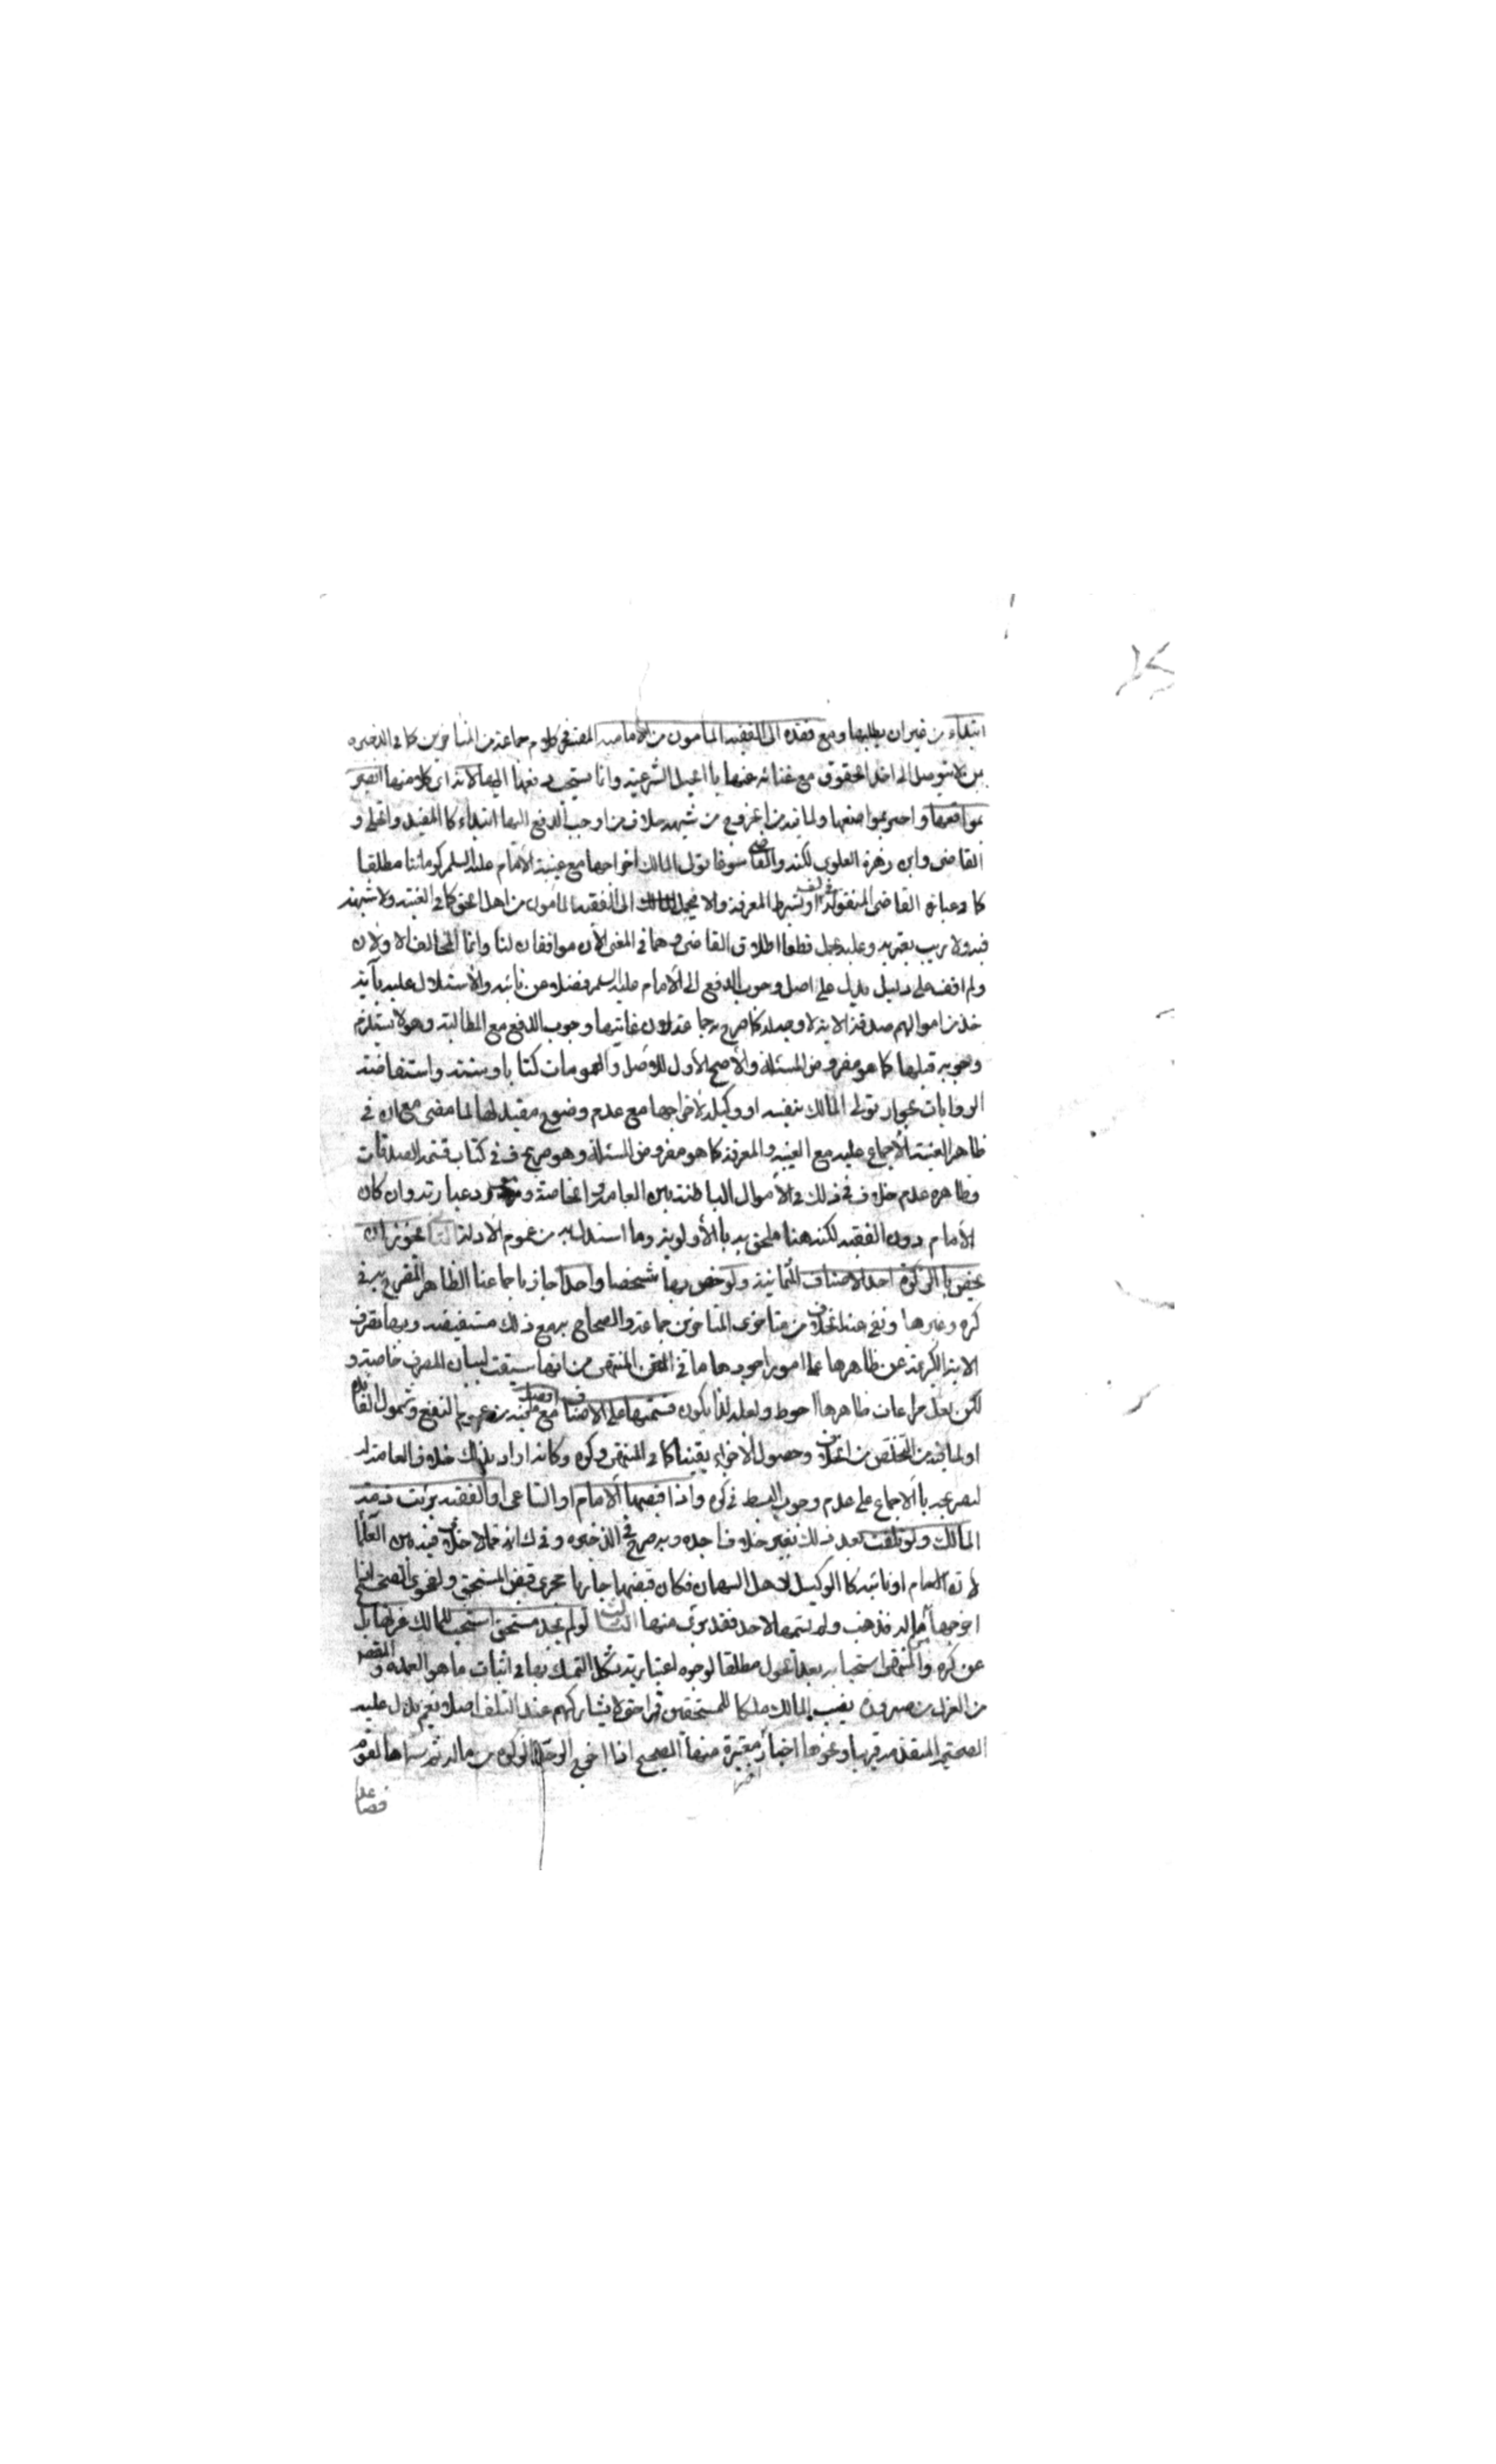 ابتداء من غير ان يطلبها ومع فقده الى الفقيه المأمون من الامامية المفتى في كلام جماعة من المتأخرين كما في الذخيرة
من لا يتوصل الى اخذ الحقوق مع غنائه عنها با الحيل الشرعية وانما يستحب دفعها اليهما لانه اي كلا منهما ابصر
بمواقعها واخبر بمواضعها ولما فيه من الخروج من شبهه خلاف من اوجب الدفع اليهما ابتداء كا المفيد والحلبي و
القاضي وابن زهرة العلوي لكنه والقاضي سوغا تولى المالك اخراجها مع غيبة الامام عليه السلم كزماننا مطلقا
كما وعبارة القاضي المنقولة في لف او بشرط المعرفة والا فيحمل الى الفقيه المأمون من اهل الحق كما في الغنية ولا شبهة
فيه ولا ريب يعتريه وعليه يحمل قطعا اطلاق القاضي وهما في المعنى الآن موافقان لنا وانما المخالف الاولان
ولم اقف على دليل يدل على اصل وجوب الدفع الى الامام عليه السلم فضلا عن نائبه والاستدلال عليه بآية
خذ من اموالهم صدقة الاية لا وجه له كما صرح به جماعة لان غايتها وجوب الدفع مع المطالبة وهو لا يستلزم
وجوبه قبلها كما هو مفروض المسئلة والاصح الاول للاصل والعمومات كتابا وسنة واستفاضة
الروايات بجواز تولى المالك بنفسه او وكيله لاخراجها مع عدم وضوح مقيد لها لما مضى مع ان في
ظاهر الغنية الاجماع عليه مع الغيبة والمعرفة كما هو مفروض المسئلة وهو صريح ف في كتاب قسمة الصدقات
وظاهره عدم خلاف في ذلك في الاموال الباطنة بين العامة والخاصة ومورد عبارته وان كان
الامام دون الفقيه لكنه هنا ملحق به با الاولوية وما استدل به من عموم الادلة يجوز ان
يخص با الزكوة احد الاصناف الثمانية ولو خص بها شخصا واحدا جاز باجماعنا الظاهر المصرح به في
كره وغيرها ونفى عنه الخلاف من متاخري المتاخرين جماعة والصحاح به مع ذلك مستفيضة وبها يصرف
الاية الكريمة عن ظاهرها على امور اجودها ما في المنتهى من انها سيقت لبيان المصرف خاصة و
لكن لعل مراعات ظاهرها احوط ولعله لذا يكون قسمتها على الاصناف افضل مع ما فيه من عموم النفع وشمول الفائدة
او لما فيه من التخلص من الخلاف وحصول الاجزاء يقينا كما في المنتهى وكره وكانه اراد بذلك خلاف العامة له
لتصريحه با الاجماع على عدم وجوب البسط في كره واذا قبضها الامام او الساعي او الفقيه برئت ذمة
المالك ولو تلفت بعد ذلك بغير خلاف اجده وبه صرح في الذخيرة وفي ك انه مما لا خلاف فيه بين العلماء
لان الامام او نائبه كا الوكيل لاهل السهمان فكان قبضها جاريا مجرى قبض المستحق ولفحوى الصحيح اذا
اخرجها من ماله فذهبت ولم يسمها لاحد فقد برئ منها الثالث لو لم يجد مستحقا استحب للمالك عزلها بل
عن كره والمنتهى استحبابه بعد الحول مطلقا لوجوه اعتبارية يشكل التمسك بها في اثبات ما هو العمدة والمقصد
من العزل من صيرورة نصيب المالك ملكا للمستحقين قهرا حتى لا يشاركهم عند التلف اصلا نعم يدل عليه
الصحيح المتقدمة قريبا ونحوها اخبار معتبرة منها الصحيح اذا اخرج الرجل الزكوة من ماله ثم سماها لقوم